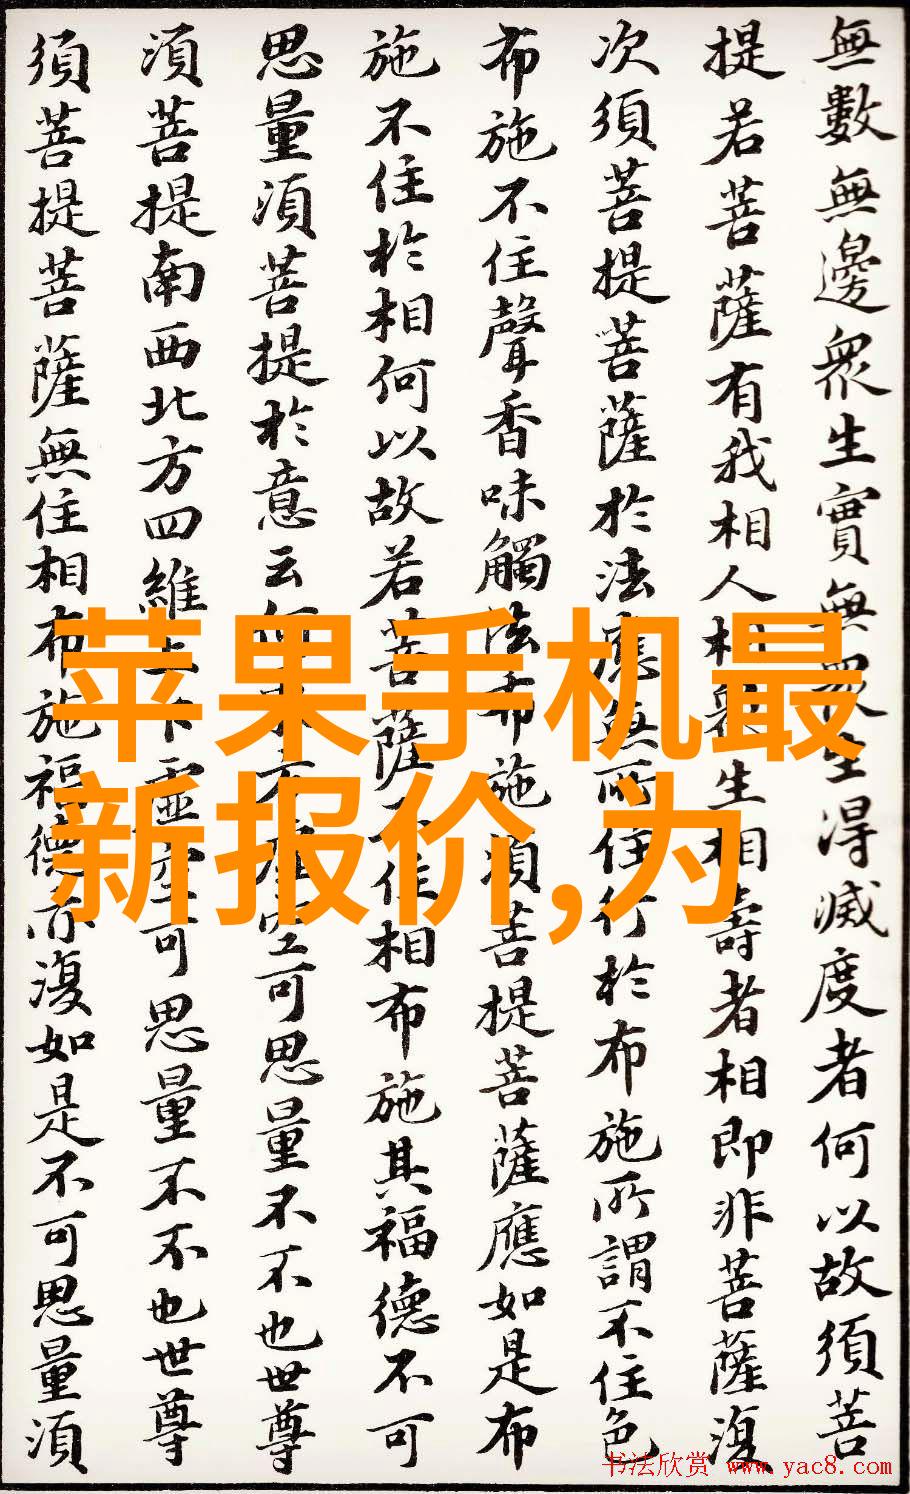 無數無邊眾生實無眾生得滅度者何以故須菩
提若菩薩有我相人相眾生相壽者相即非菩薩復
次須菩提菩薩於法應無所住行於布施所謂不住色
布施不住聲香味觸法布施須菩提菩薩應如是布
施不住於相何以故若菩薩不住相布施其福德不可
思量須菩提於意云何東方虛空可思量不不也世尊
須菩提南西北方四維上下虛空可思量不不也世尊
須菩提菩薩無住相布施福德亦復如是不可思量須
苹果手机最
新报价,为
书法欣赏 www.yac8.com